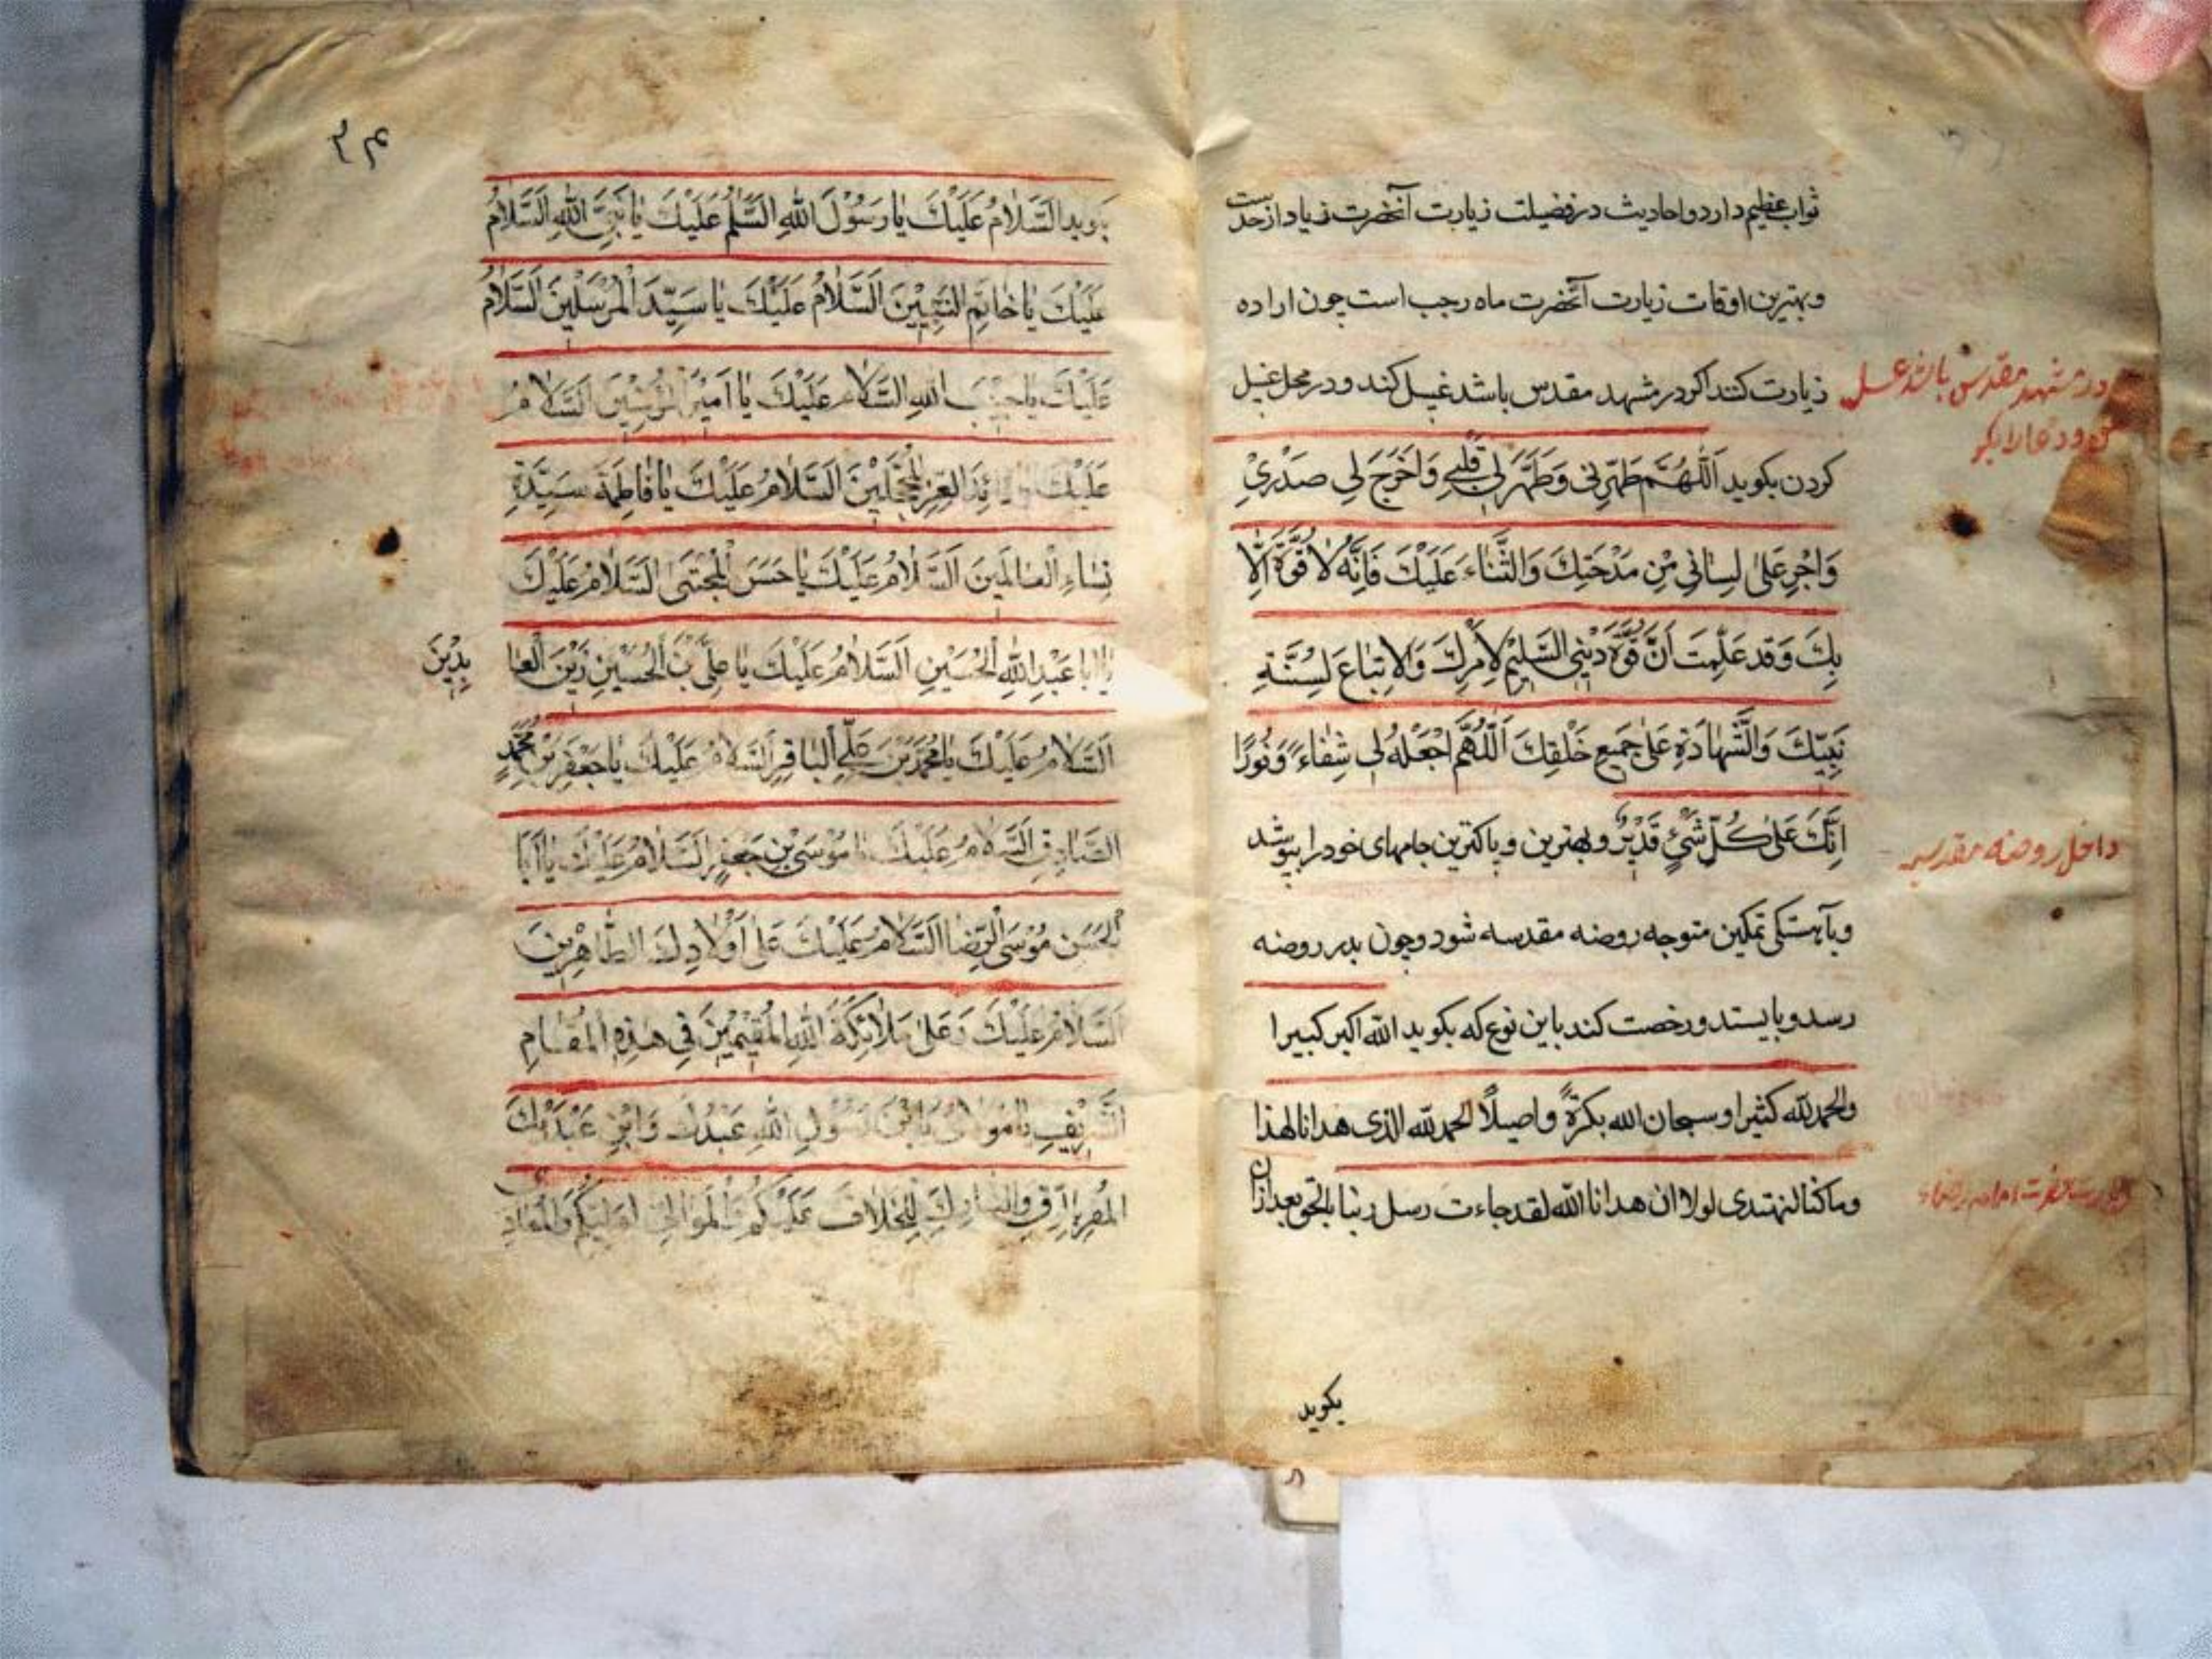 ثواب عظیم دارد و احادیث در فضیلت زیارت آنحضرت زیاد از حدست
و بهترین اوقات زیارت آنحضرت ماه رجب است چون اراده
زیارت کنند اکر در مشهد مقدس باشد غسل کند و در محل غسل
در مشهد مقدس باشد غسل
کردن بکوید اَللّٰهُمَّ طَهِّرْنی وَطَهِّرْ لِی قَلْبِی وَاَخْرِجْ لِی صَدْرِیْ
وَاَجْرِ عَلیٰ لِسٰانِی مِنْ مَدْحَتِكَ وَالثَّنٰاءِ عَلَیْكَ فَاِنَّهُ لٰا قُوَّةَ اِلّٰا
بِكَ وَقَد عَلِمْتَ اَنَّ قُوَّةَ دِیْنِی التَّسْلِیْمُ لِاَمْرِكَ وَالاِتِّبٰاعَ لِسُنَّةِ
نَبِیِّكَ وَالشَّهٰادَةِ عَلیٰ جَمِیعِ خَلْقِكَ اَللّٰهُمَّ اجْعَلْهُ لِی شِفٰاءً وَنُورًا
اِنَّكَ عَلیٰ كُلِّ شَیْءٍ قَدِیْرٌ و بهترین و پاکترین جامهای خود را بپوشد
داخل روضه مقدسه
و بآهستکی تمکین متوجه روضه مقدسه شود و چون بدر روضه
رسد و بایستد و رخصت کند باین نوع که بکوید الله اکبر کبیرا
والحمد لله کثیرا و سبحان الله بکرةً و اصیلًا الحمد لله الذی هدانا لهذا
وما کنا لنهتدی لولا ان هدانا الله لقد جاءت رسل ربنا بالحق بعد ازان
بکوید
۳۴
بکوید اَلسَّلٰامُ عَلَیْكَ یٰا رَسُوْلَ اللهِ السَّلٰمُ عَلَیْكَ یٰا نَبِیَّ اللهِ اَلسَّلٰامُ
عَلَیْكَ یٰا خٰاتَمِ النَّبِیِّیْنَ السَّلٰامُ عَلَیْكَ یٰا سَیِّدَ الْمُرْسَلِیْنَ السَّلٰامُ
عَلَیْكَ یٰا حَبِیْبَ اللهِ السَّلٰامُ عَلَیْكَ یٰا اَمِیْرَ الْمُؤمِنِیْنَ السَّلٰامُ
عَلَیْكَ یٰا قٰائِدَ الْغُرِّ الْمُحَجَّلِیْنَ السَّلٰامُ عَلَیْكَ یٰا فٰاطِمَةَ سَیِّدَةِ
نِسٰاءِ الْعٰالَمِینَ السَّلٰامُ عَلَیْكَ یٰا حَسَنَ الْمُجْتَبیٰ السَّلٰامُ عَلَیْكَ
یٰا اَبا عَبْدِ اللهِ الْحُسَیْنِ السَّلٰامُ عَلَیْكَ یٰا عَلِیَّ بْنَ الْحُسَیْنِ زَیْنَ الْعٰا بِدِیْنَ
السَّلٰامُ عَلَیْكَ یٰا مُحَمَّدَ بْنَ عَلِیٍّ الْبٰاقِرِ السَّلٰامُ عَلَیْكَ یٰا جَعْفَرَ بْنَ مُحَمَّدٍ
الصّٰادِقِ السَّلٰامُ عَلَیْكَ یٰا مُوْسَی بْنِ جَعْفَرٍ السَّلٰامُ عَلَیْكَ یٰا اَبَا
الْحَسَنِ مُوْسَی الرِّضٰا السَّلٰامُ عَلَیْكَ عَلیٰ اَوْلٰادِكَ الطّٰاهِرِیْنَ
السَّلٰامُ عَلَیْكَ وَعَلیٰ مَلٰائِکَةِ اللهِ الْمُقِیْمِیْنَ فِی هٰذِهِ الْمَقٰامِ
الشَّرِیْفِ یٰا مَوْلٰایَ یَا بْنَ رَسُوْلِ اللهِ عَبْدُكَ وَابْنُ عَبْدَیْكَ
الْمُقِرُّ بِالرِّقِّ وَالتّٰارِكُ لِلْخِلٰافِ عَلَیْکُمْ الْمُوٰالِی لِوَلِیِّکُمْ وَالْمُعٰادِی